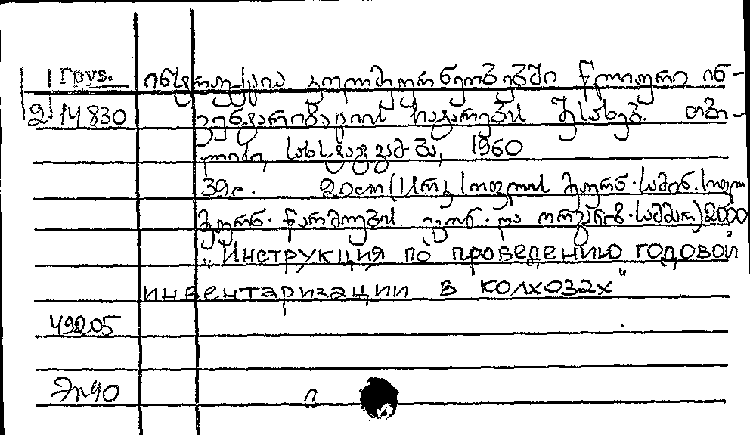 Груз. ინსტრუქცია კოლმეურნეობებში წლიური ინ-
2 14830 ვენტარიზაციის ჩატარების შესახებ. თბი-
ლისი, სახსტამბა, 1960
39с. 20см (სსრკ სოფლის მეურნ. სამინ. სოფლ
მეურნ. წარმოების ეკონ. და ორგანიზ. სამმარ.) 2000
"Инструкция по проведению годовой
инвентаризации в колхозах"
49205
Эп 90 п